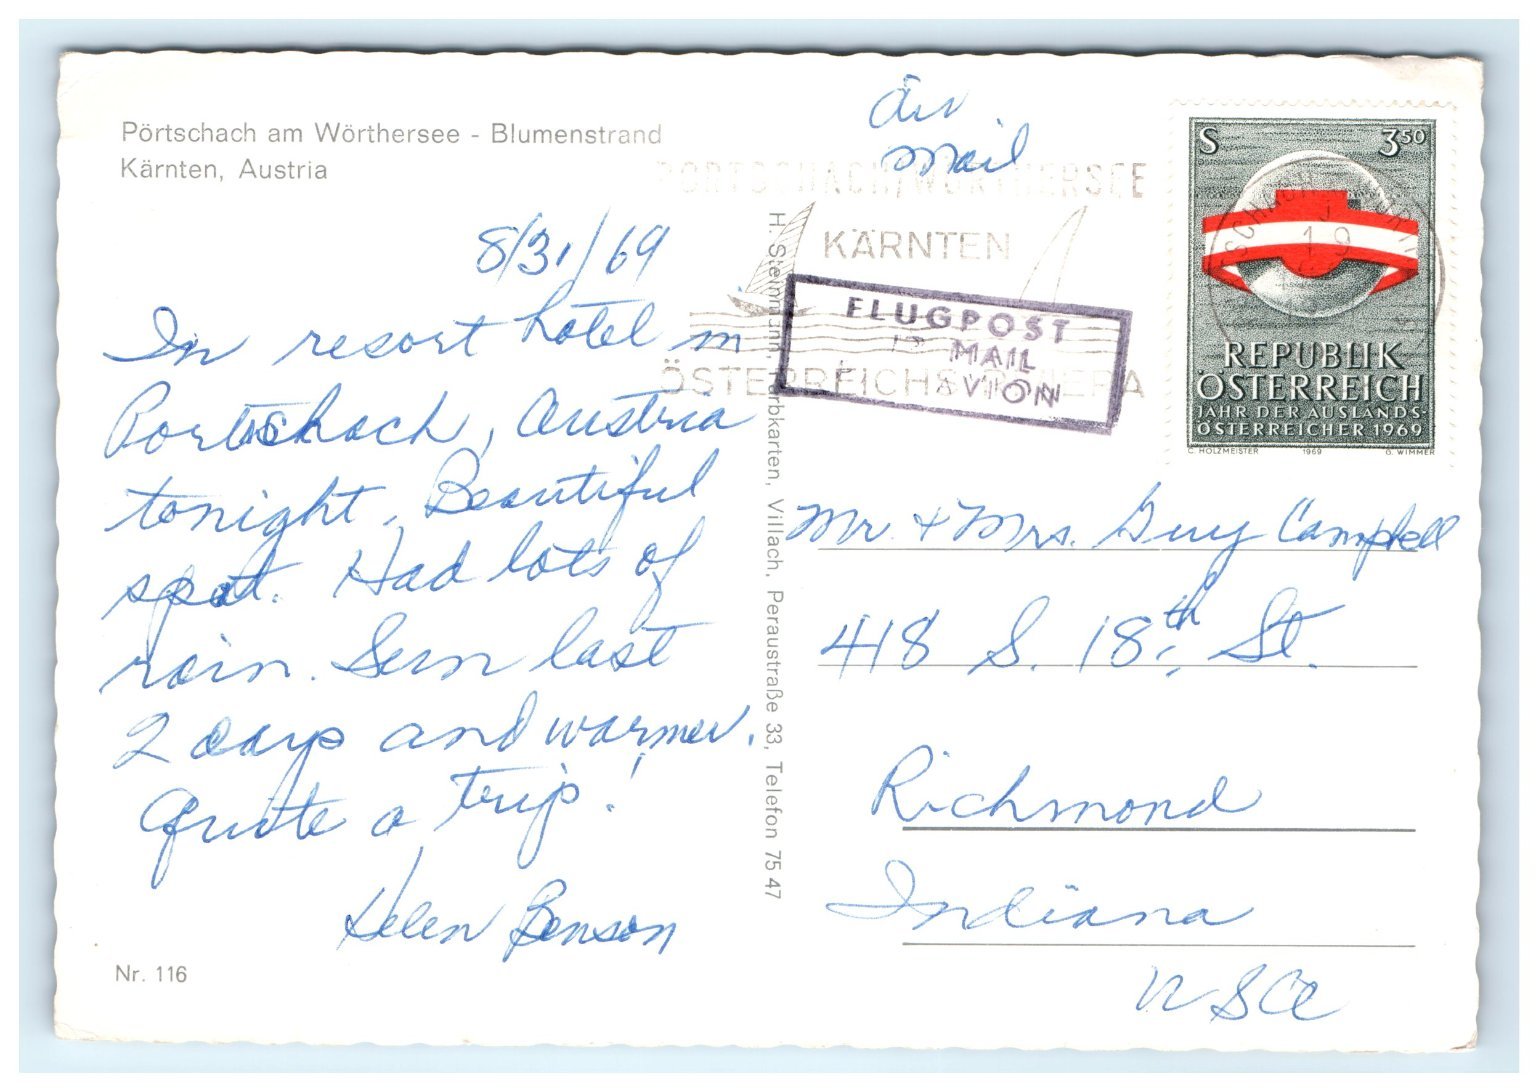 Pörtschach am Wörthersee - Blumenstrand
Kärnten, Austria
8/31/69
In resort hotel in
Portschach, Austria
tonight. Beautiful
spot. Had lots of
rain. Sun last
2 days and warmer.
Quite a trip!
Helen Benson
Nr. 116
H. Steinmann, Farbkarten, Villach, Peraustraße 33, Telefon 75 47
Air
Mail
PÖRTSCHACH/WÖRTHERSEE
KÄRNTEN
ÖSTERREICHS RIVIERA
FLUGPOST
MAIL
AVION
S 3 50
REPUBLIK
ÖSTERREICH
JAHR DER AUSLANDS-
ÖSTERREICHER 1969
C. HOLZMEISTER 1969 G. WIMMER
Mr. + Mrs. Guy Campbell
418 S. 18th St.
Richmond
Indiana
USA